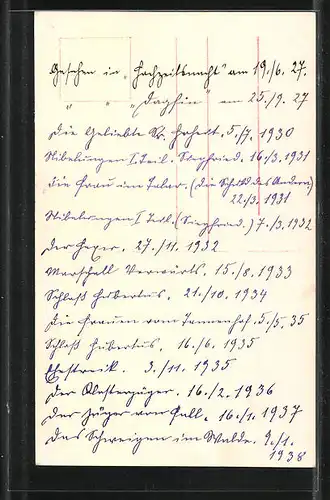 Gesehen in „Hochzeitsnacht" am 19./6. 27.
„ „ „Dagfin" am 25./9. 27
Die Geliebte Sr. Hoheit. 5./7. 1930
Nibelungen I. Teil. Siegfried. 16./3. 1931
Die Frau im Talar. (Die Schuld des Andern)
22./3. 1931
Nibelungen I Teil. (Siegfried.) 7./3. 1932
Der Hexer. 27./11. 1932
Marschall Vorwärts. 15./8. 1933
Schloß Hubertus. 21./10. 1934
Die Frauen vom Tannenhof. 5./5. 35
Schloß Hubertus. 16./6. 1935
Ehestreik. 3./11. 1935
Der Klosterjäger. 16./2. 1936
Der Jäger von Fall. 16./1. 1937
Das Schweigen im Walde. 9./1.
1938